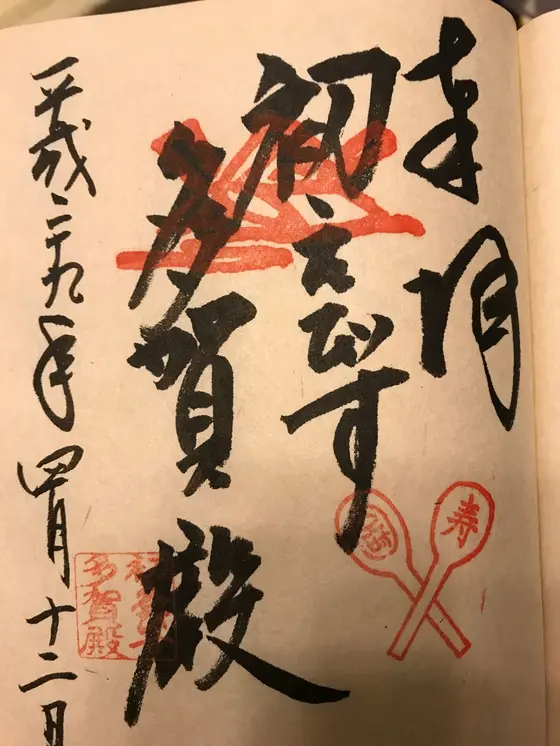 奉拝
初えびす
多賀殿
平成二十九年四月十二日
寿
多賀殿